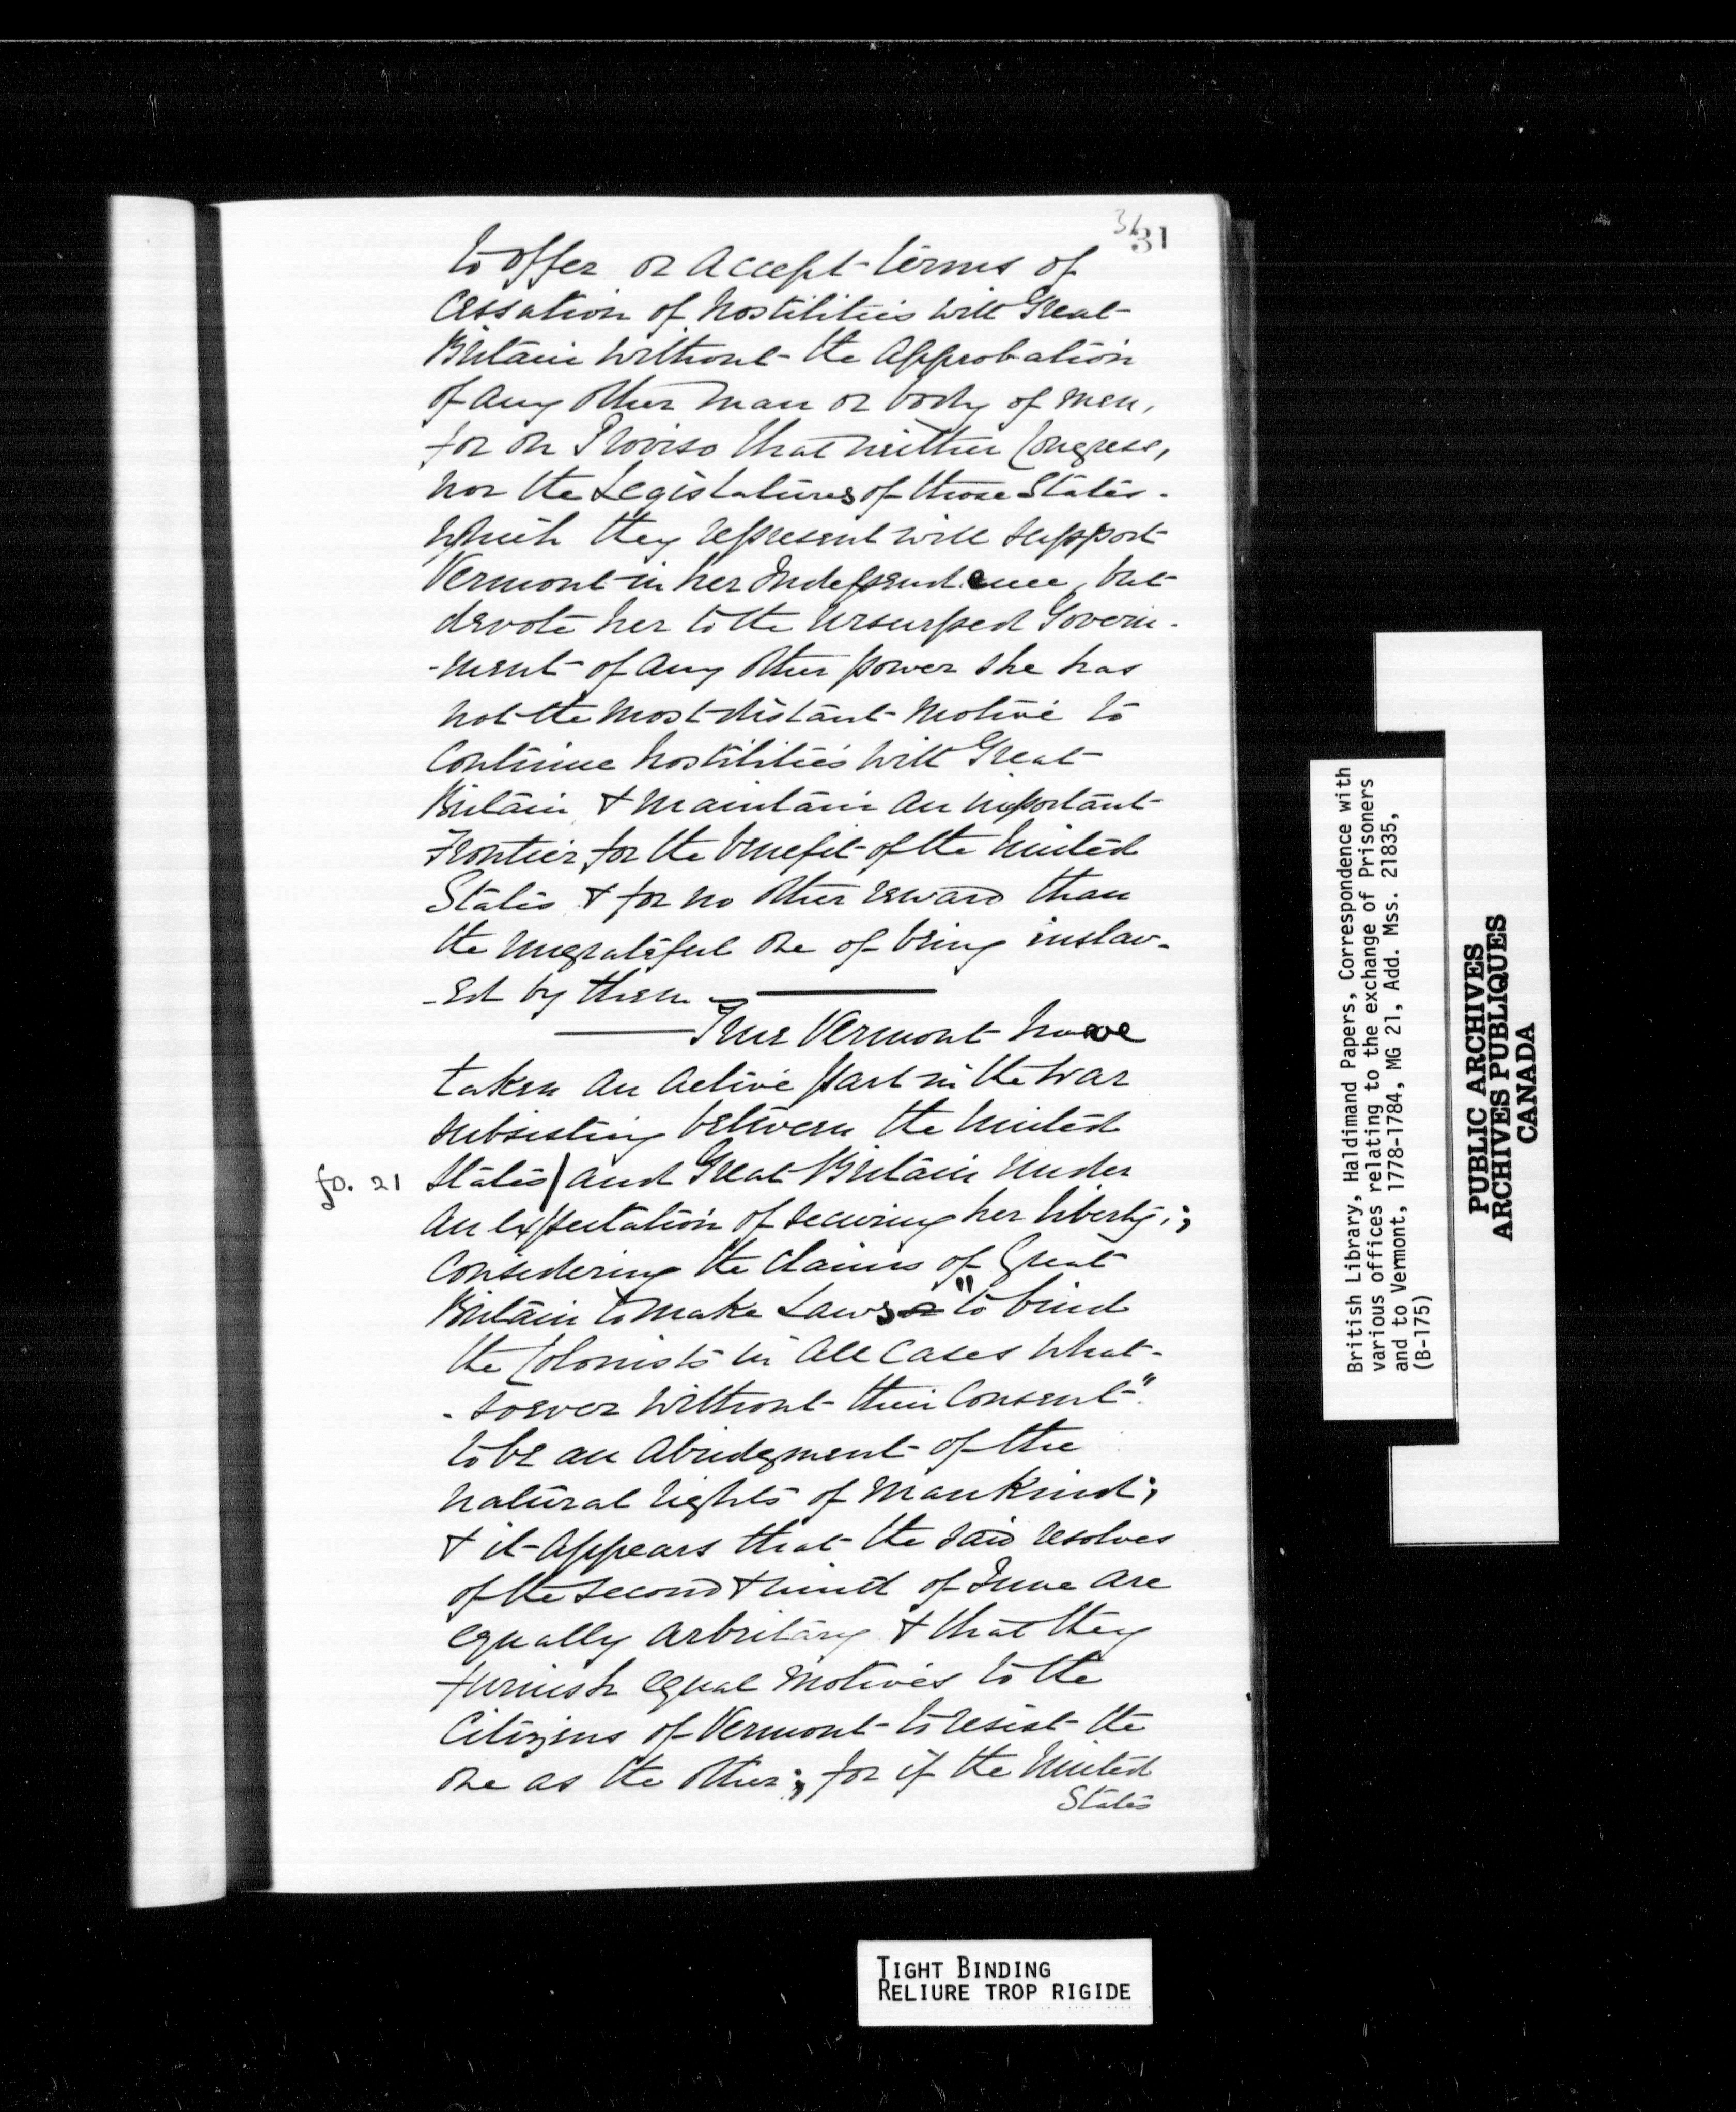 31
to offer or accept terms of
cessation of hostilities with Great
Britain without the approbation
of any other man or body of men,
for on Proviso that neither Congress,
nor the Legislatures of those States.
which they represent will support
Vermont in her Independence, but
devote her to the ursurped Govern-
-ment of any other power she has
not the most distant motive to
continue hostilities with Great
Britain & maintain an important
Frontier for the benefit of the United
States & for no other reward than
the ungrateful one of being inslav-
-ed by them
True Vermont have
taken an active part in the war
subsisting between the United
fo. 21 States | and Great Britain under
an expectation of securing her liberty;
considering the claims of Great
Britain to make Laws "to bind
the Colonists in all cases what-
-soever without their consent"
to be an abridgment of the
natural rights of mankind;
& it appears that the said resolves
of the second & ninth of June are
equally arbritary & that they
furnish equal motives to the
Citizens of Vermont to resist the
one as the other; for if the United
States
British Library, Haldimand Papers, Correspondence with
various offices relating to the exchange of Prisoners
and to Vermont, 1778-1784, MG 21, Add. Mss. 21835,
(B-175)
PUBLIC ARCHIVES
ARCHIVES PUBLIQUES
CANADA
TIGHT BINDING
RELIURE TROP RIGIDE